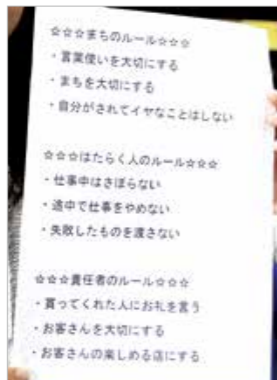 ☆☆☆まちのルール☆☆☆
・言葉使いを大切にする
・まちを大切にする
・自分がされてイヤなことはしない
☆☆☆はたらく人のルール☆☆☆
・仕事中はさぼらない
・途中で仕事をやめない
・失敗したものを渡さない
☆☆☆責任者のルール☆☆☆
・買ってくれた人にお礼を言う
・お客さんを大切にする
・お客さんの楽しめる店にする